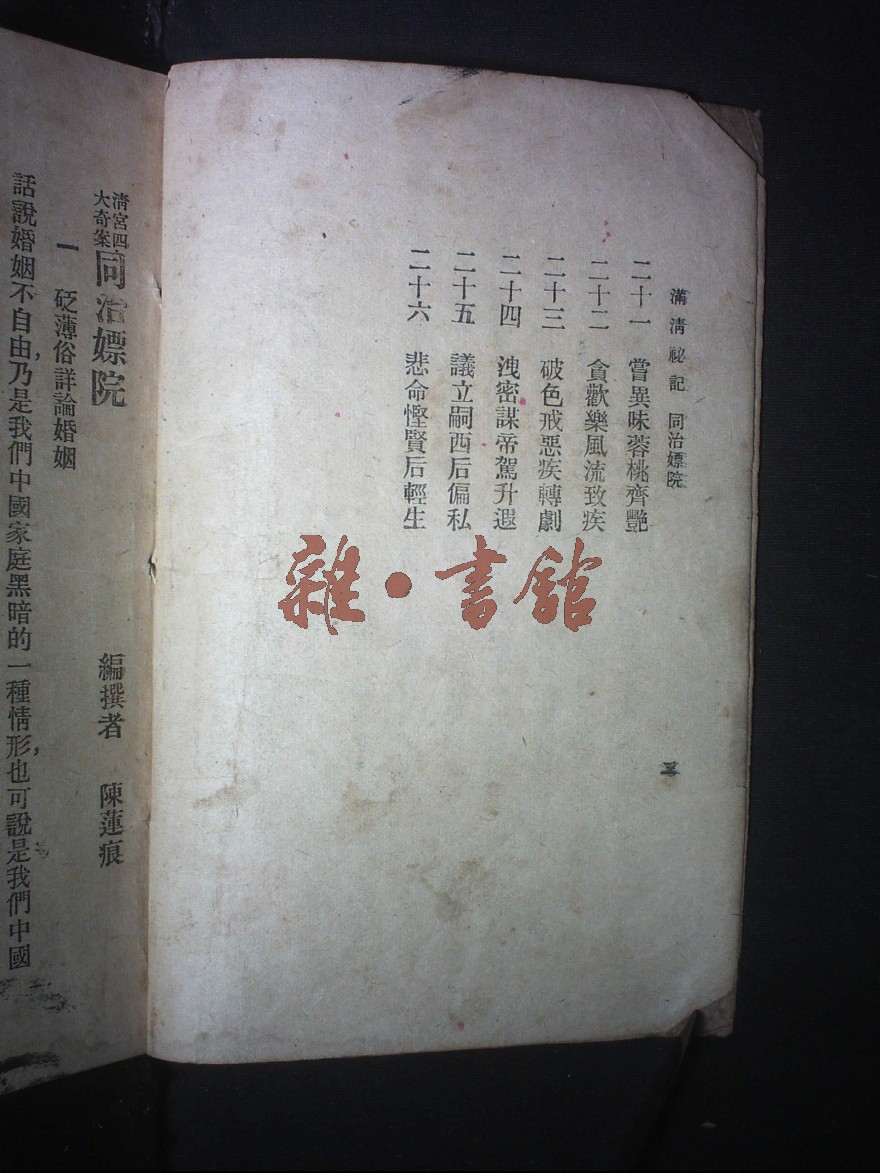 滿清祕記 同治嫖院
二十一 嘗異味蓉桃齊艷
二十二 貪歡樂風流致疾
二十三 破色戒惡疾轉劇
二十四 洩密謀帝駕升遐
二十五 議立嗣西后偏私
二十六 悲命慳賢后輕生
三
雜・書館
清宮四大奇案 同治嫖院
編撰者 陳蓮痕
一 砭薄俗詳論婚姻
話說婚姻不自由，乃是我們中國家庭黑暗的一種情形，也可說是我們中國